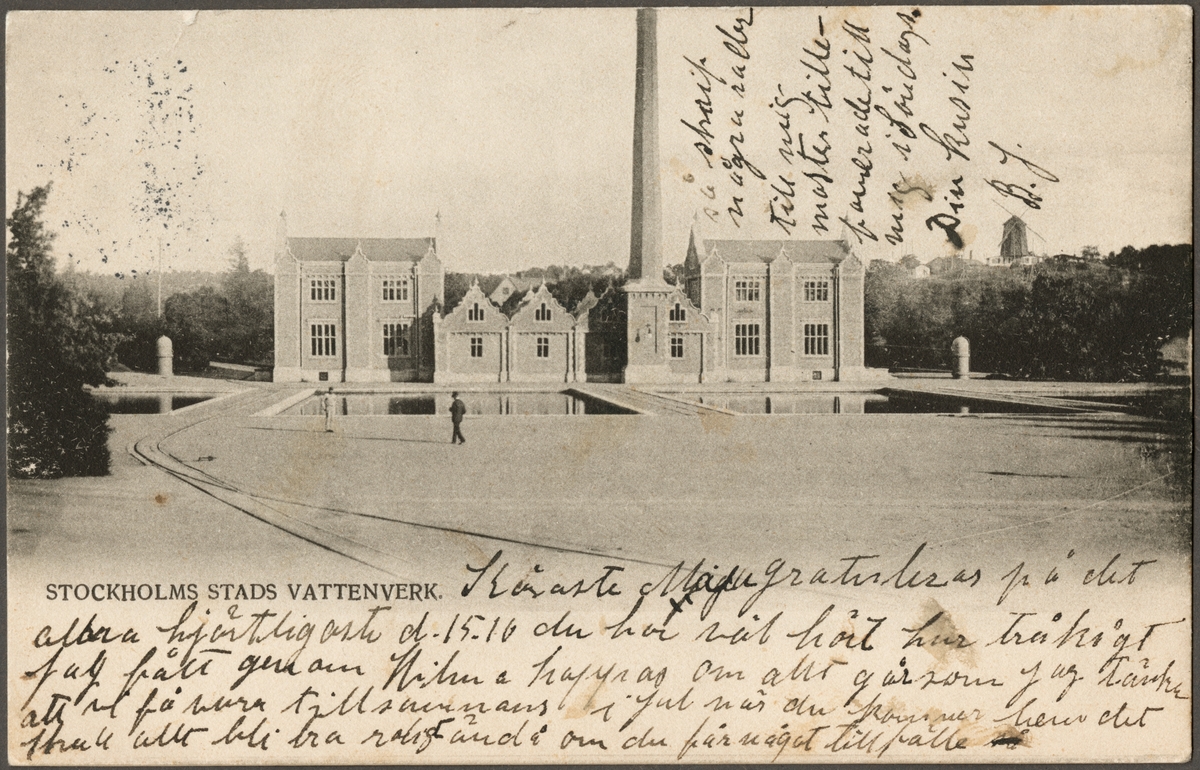 STOCKHOLMS STADS VATTENVERK.
Käraste Maja gratuleras på det
allra hjärtligaste d. 15-16 du har väl hört hur tråkigt
jag fått genom Hilma hoppas om allt går som jag tänkt
att vi få vara tillsammans i jul när du kommer hem det
skall allt bli bra roligt ändå om du får något tillfälle
så skrif
några rader
till mig
moster tille
till
mig i Söndags.
Din kusin
B. J.